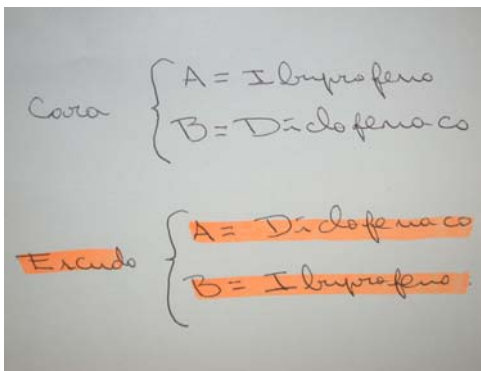 Cara
A = Ibuprofeno
B = Diclofenaco
Escudo
A = Diclofenaco
B = Ibuprofeno.